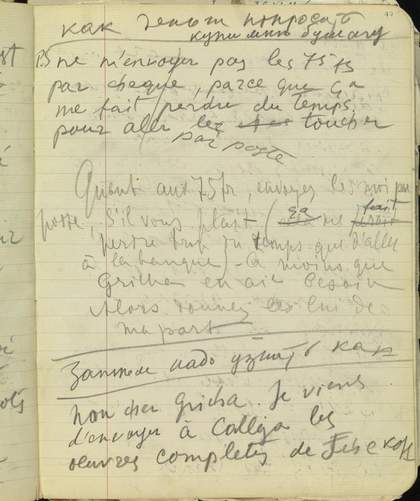 как деньги попросить
купи мне бумагу
PS ne m'envoyer pas les 75 frs
par cheque, parce que ça
me fait perdre du temps
pour aller les toucher
par poste
Quant aux 75 fr, envoyez les moi par
poste, s'il vous plaît (ça me fait
perdre trop du temps que d'aller
à la banque) - à moins que
Gricha en ait besoin
Alors donnez les lui de
ma part
Затем надо узнать как
Mon cher Gricha. Je viens
d'envoyer à Calliga les
oeuvres completes de